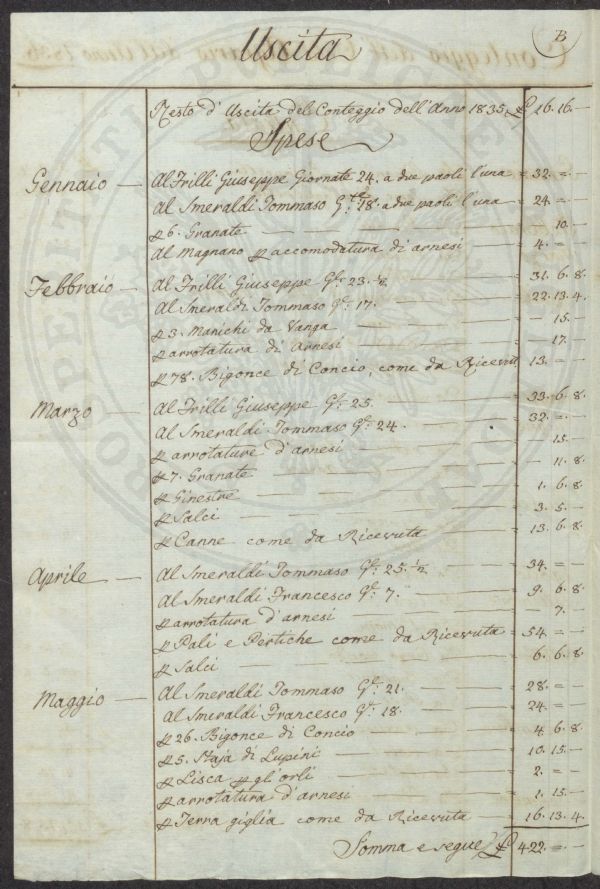 Uscita
B
Resto d'Uscita del Conteggio dell'Anno 1835, £ 16. 16. —
Spese
Gennaio — Al Frilli Giuseppe Giornate 24. a due paoli l'una = 32. = —
Al Smeraldi Tommaso G.te 18. a due paoli l'una = 24. = —
p 6. Granate — 10. —
Al Magnano p accomodatura di arnesi — = 4. = —
Febbraio — Al Frilli Giuseppe G.te 23. ½ — = 31. 6. 8.
Al Smeraldi Tommaso G.te 17. — = 22. 13. 4.
p 3. Manichi da Vanga — 15. —
p arrotatura di Arnesi — 17. —
p 78. Bigonce di Concio, come da Ricevut 13. = —
Marzo — Al Frilli Giuseppe G.te 25. — = 33. 6. 8.
Al Smeraldi Tommaso G.te 24. — = 32. = —
p arrotature d'arnesi — 15. —
p 7. Granate — 11. 8.
p Ginestre — = 1. 6. 8.
p Salci — = 3. 5. —
p Canne come da Ricevuta — = 13. 6. 8.
Aprile — Al Smeraldi Tommaso G.te 25. ½ — = 34. = —
Al Smeraldi Francesco G.te 7. — = 9. 6. 8.
p arrotatura d'arnesi — 7. —
p Pali e Pertiche come da Ricevuta = 54. = —
p Salci — = 6. 6. 8.
Maggio — Al Smeraldi Tommaso G.te 21. — = 28. = —
Al Smeraldi Francesco G.te 18. — = 24. = —
p 26. Bigonce di Concio — = 4. 6. 8.
p 5. Staja di Lupini — = 10. 15. —
p Lisca p gl'orli — = 2. = —
p arrotatura d'arnesi — = 1. 15. —
p Terra giglia come da Ricevuta — = 16. 13. 4.
Somma e segue £ 422. = —